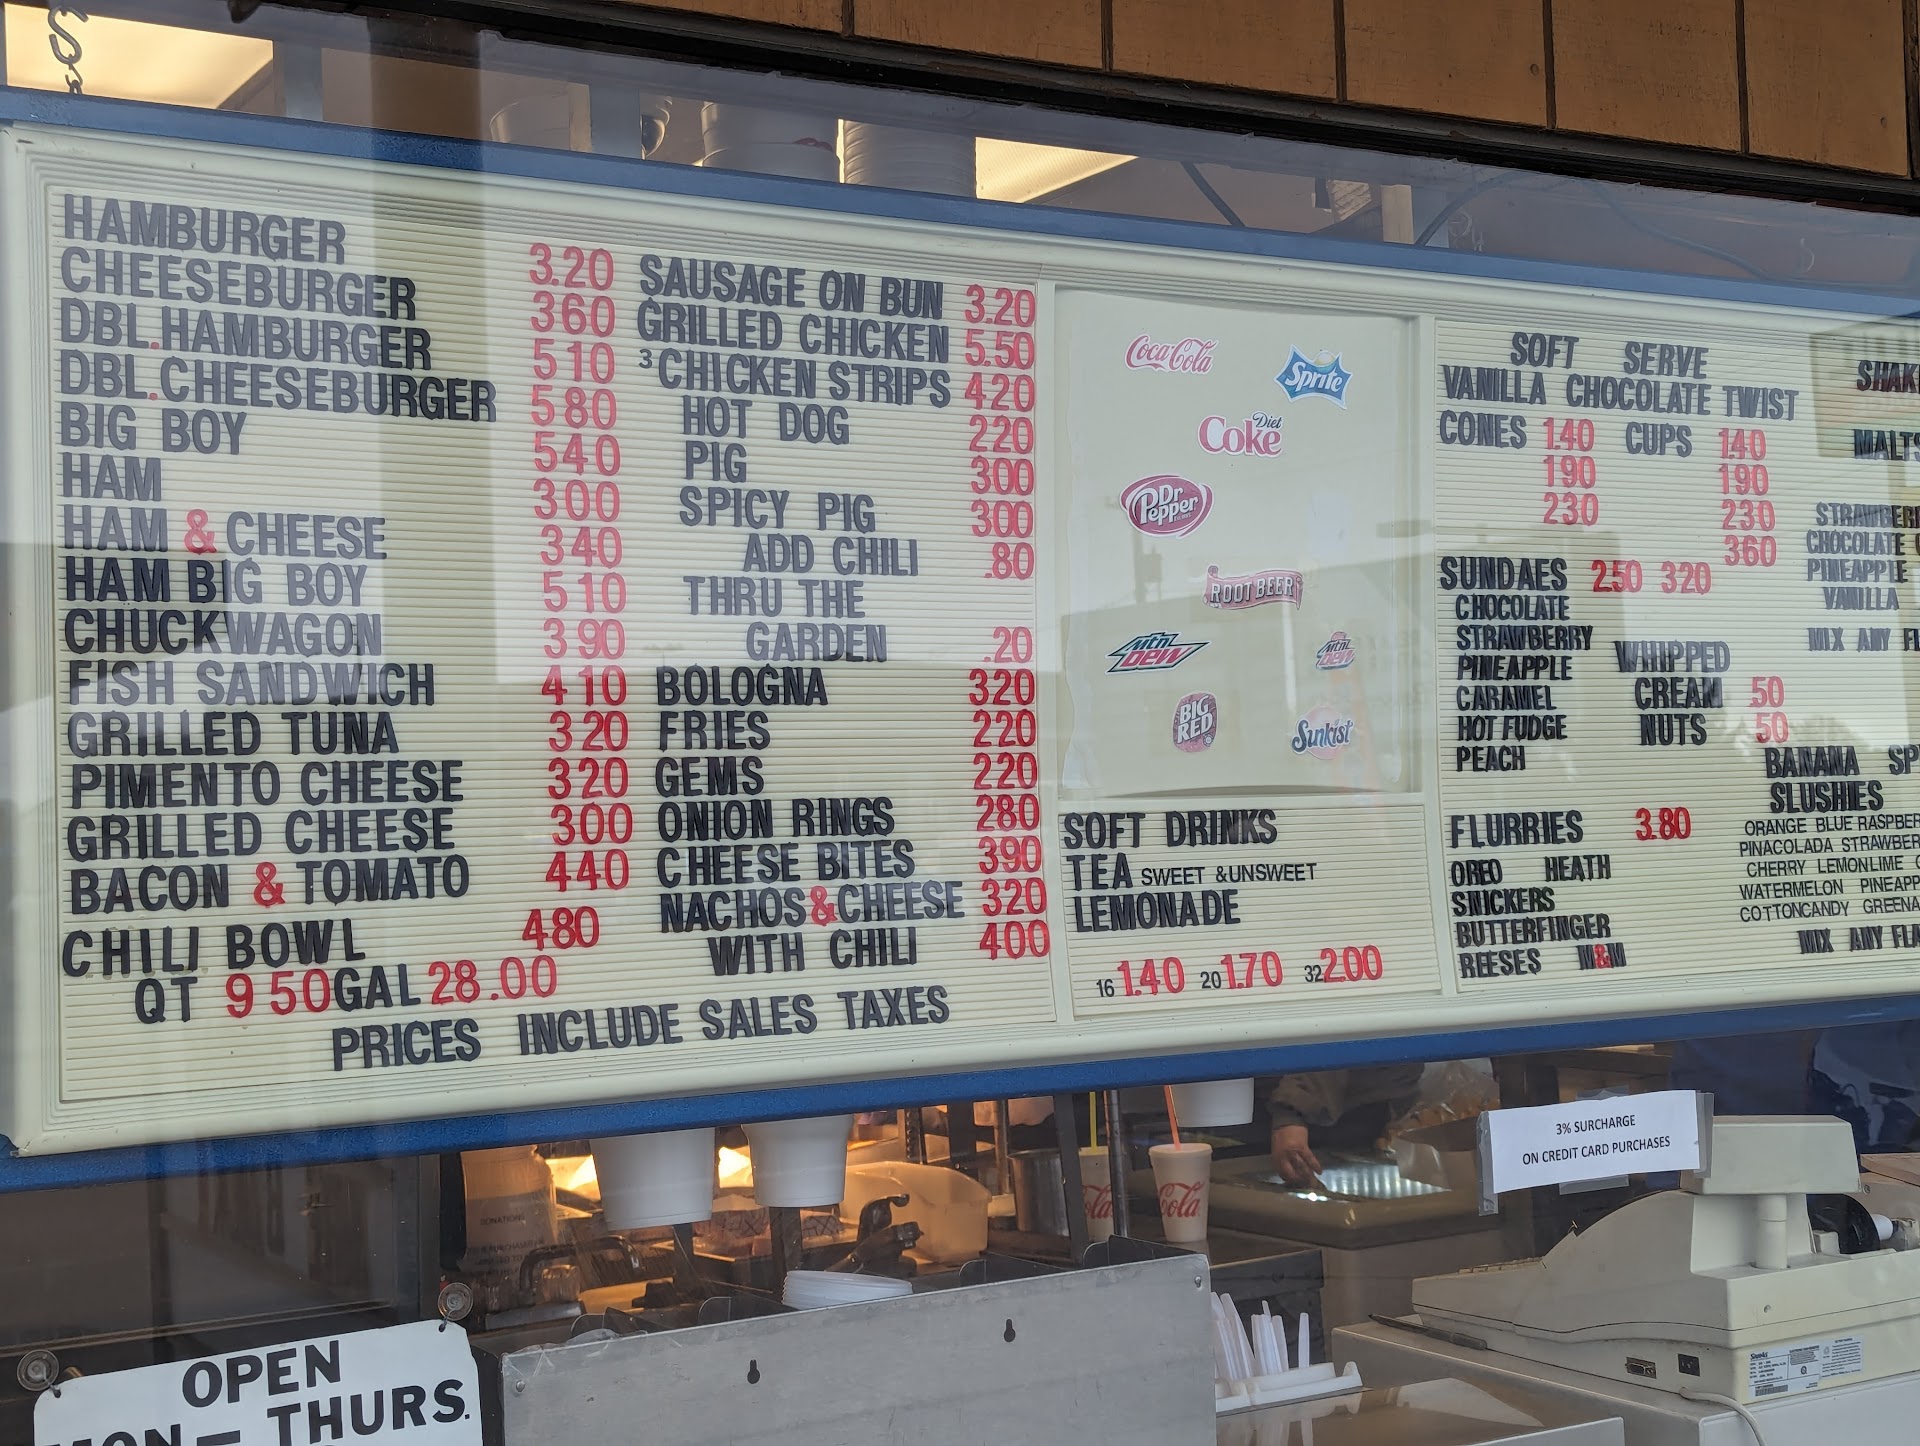 HAMBURGER 3.20
CHEESEBURGER 360
DBL.HAMBURGER 510
DBL.CHEESEBURGER 580
BIG BOY 540
HAM 300
HAM & CHEESE 340
HAM BIG BOY 510
CHUCKWAGON 390
FISH SANDWICH 410
GRILLED TUNA 320
PIMENTO CHEESE 320
GRILLED CHEESE 300
BACON & TOMATO 440
CHILI BOWL 480
QT 9 50 GAL 28.00
SAUSAGE ON BUN 3.20
GRILLED CHICKEN 5.50
3 CHICKEN STRIPS 420
HOT DOG 220
PIG 300
SPICY PIG 300
ADD CHILI .80
THRU THE
GARDEN .20
BOLOGNA 320
FRIES 220
GEMS 220
ONION RINGS 280
CHEESE BITES 390
NACHOS & CHEESE 320
WITH CHILI 400
PRICES INCLUDE SALES TAXES
Coca-Cola
Sprite
Diet
Coke
Dr
Pepper
ROOT BEER
Mtn
DEW
Mtn
DEW
BIG
RED
Sunkist
SOFT DRINKS
TEA SWEET & UNSWEET
LEMONADE
16 1.40 20 1.70 32 2.00
SOFT SERVE
VANILLA CHOCOLATE TWIST
CONES 1.40 CUPS 1.40
190 190
230 230
360
SUNDAES 2.50 320
CHOCOLATE
STRAWBERRY
PINEAPPLE
CARAMEL
HOT FUDGE
PEACH
WHIPPED
CREAM .50
NUTS 50
FLURRIES 3.80
OREO HEATH
SNICKERS
BUTTERFINGER
REESES M&M
SHAK
MALTS
STRAWBER
CHOCOLATE
PINEAPPLE
VANILLA
MIX ANY FL
BANANA SP
SLUSHIES
ORANGE BLUE RASPBER
PINACOLADA STRAWBER
CHERRY LEMONLIME
WATERMELON PINEAPP
COTTONCANDY GREENA
MIX ANY FLA
3% SURCHARGE
ON CREDIT CARD PURCHASES
DONATIONS
Cola
OPEN
MON – THURS.